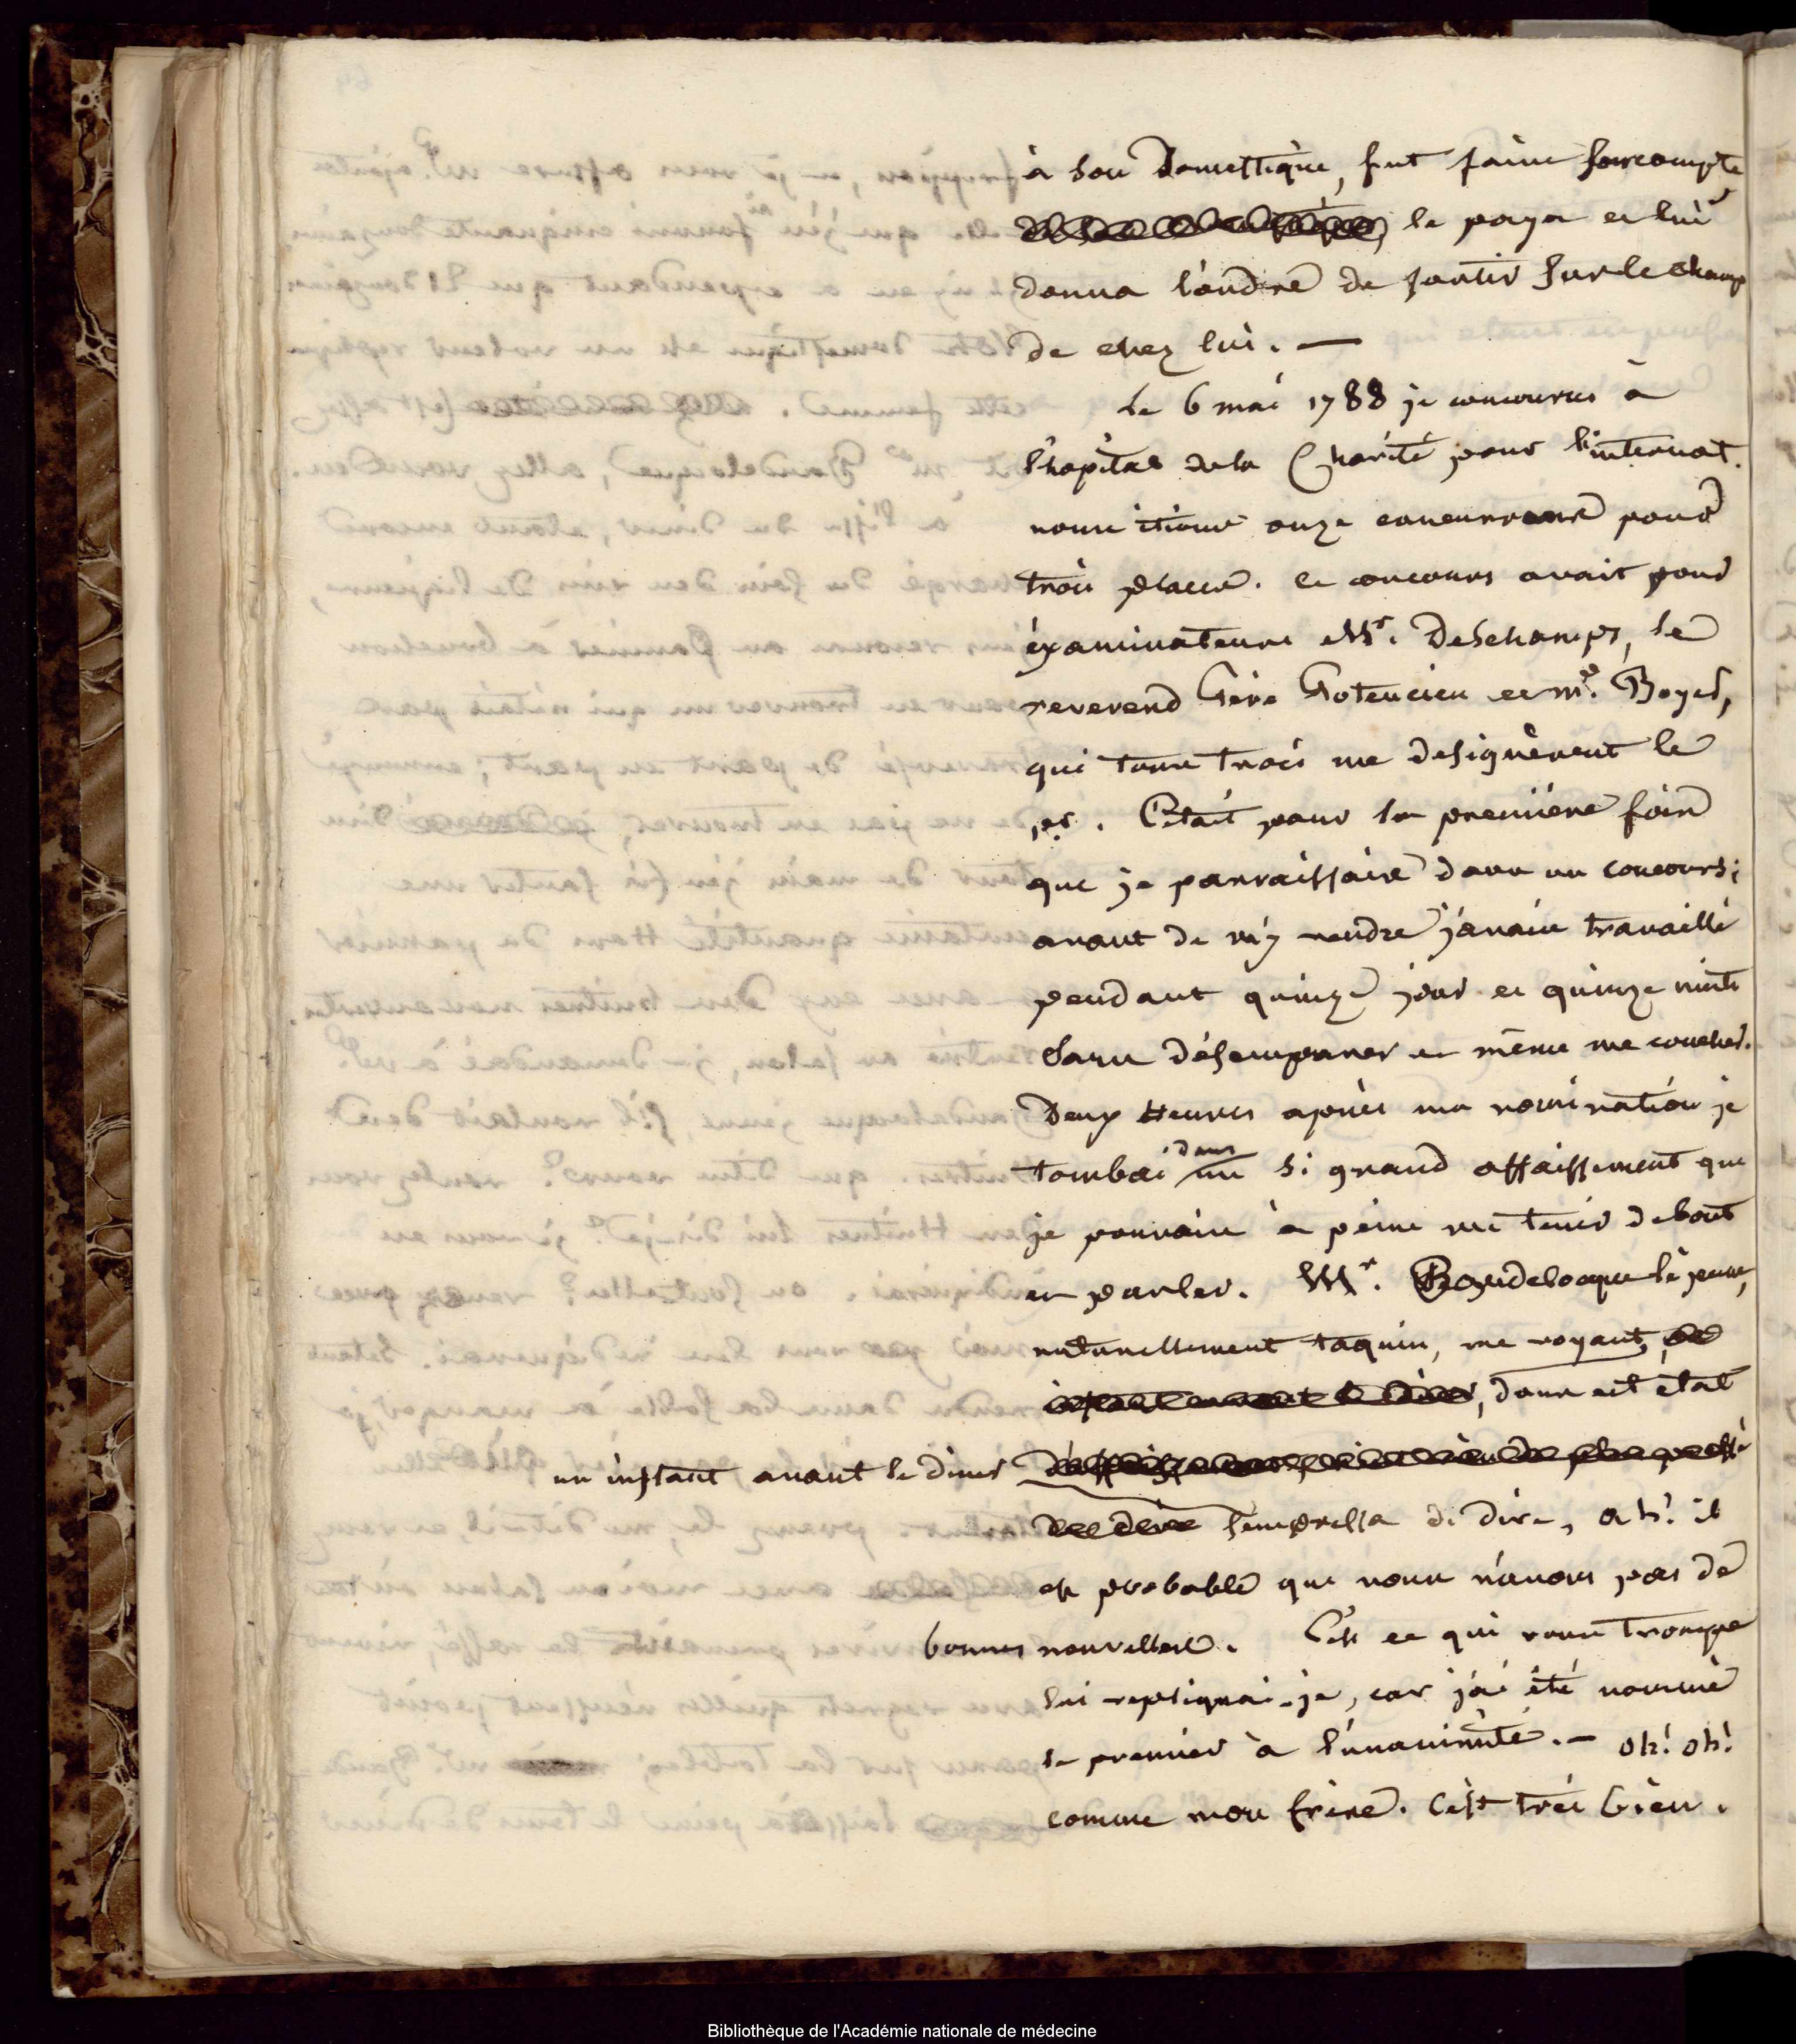 à son Domestique, fut faire son compte
le paya et lui
donna l'ordre de sortir sur le champ
de chez lui. —
Le 6 mai 1788 je concourus à
l'hopital de la Charité pour l'internat.
nous étions onze concurrens pour
trois places. Ce concours avait pour
éxaminateurs Mr. Deschamps, le
reverend Père Potencien et mr. Boyer,
qui tous trois me designèrent le
1er. C'était pour la première fois
que je parraissais dans un concours;
avant de m'y rendre j'avais travaillé
pendant quinze jour et quinze nuits
sans désemparer et même me coucher.
Deux Heures après ma nomination je
tombai dans un si grand affaissement que
je pouvais à peine me tenir debout
et parler. Mr. Baudelocque le jeune,
naturellement taquin, me voyant,
dans cet état
un instant avant le diner
s'empressa de dire, ah! il
est probable que nous n'avons pas de
bonnes nouvelles. C'est ce qui vous trompe
lui repliquai-je, car j'ai été nommé
le premier à l'unanimité. — oh! oh!
comme mon frère. C'est très bien.
Bibliothèque de l'Académie nationale de médecine